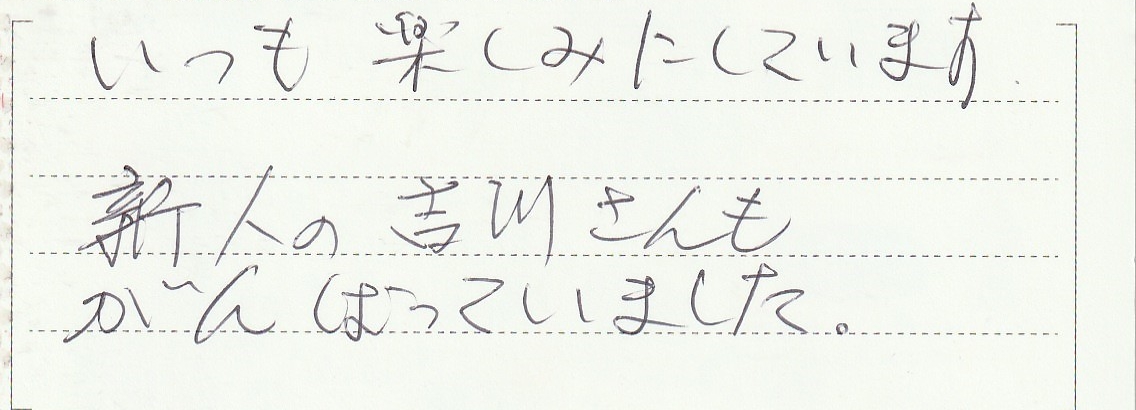 いつも楽しみにしています.
新人の吉川さんも
がんばっていました。